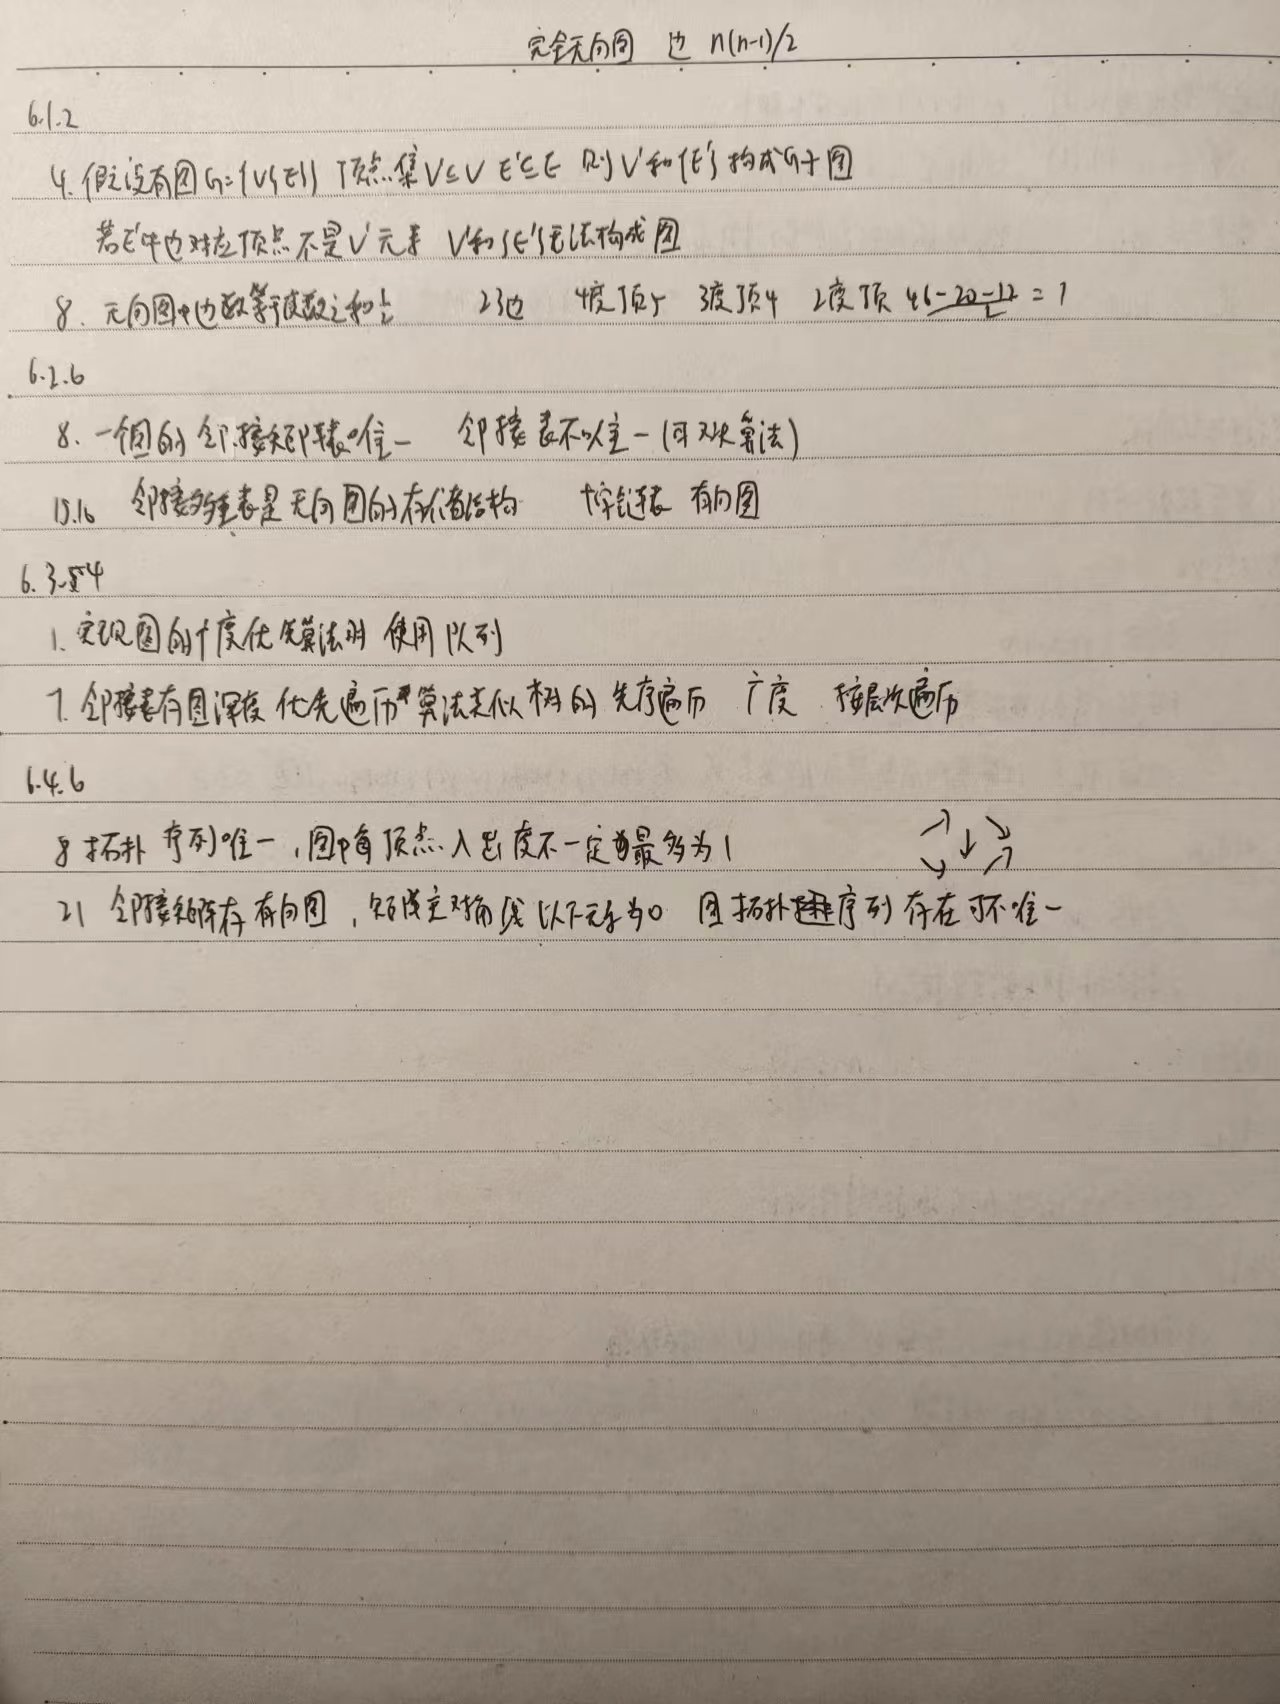 完全无向图 边 n(n-1)/2
6.1.2
4. 假设有图G={V{E}} 顶点集V'⊆V E'⊆E 则V'和{E'}构成G子图
若E'中边对应顶点不是V'元素 V'和{E'}无法构成图
8. 无向图中边数等于度数之和½ 23边 4度顶5 3度顶4 2度顶 (46-20-12)/2 = 7
6.2.6
8. 一个图的邻接矩阵表唯一 邻接表不唯一(取决算法)
15.16 邻接多重表是无向图的存储结构 十字链表 有向图
6.3.4
1. 实现图的广度优先算法时 使用队列
7. 邻接表存图深度优先遍历算法类似树的先序遍历 广度 按层次遍历
6.4.6
8 拓扑序列唯一,图中每顶点入出度不一定最多为1
21 邻接矩阵存有向图,矩阵主对角线以下元素为0 图拓扑序列存在 可不唯一